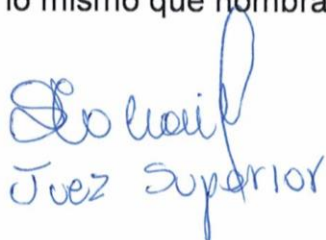 lo mismo que nombra
Juez Superior